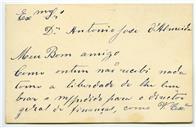 Ex.mo Sr.
Dr. Antonio Jose d'Almeida
Meu Bom amigo
Como ontem não recebi nada
tomo a liberdade de lhe lem
brar o pedido para o director
geral de finanças, como V. Exa